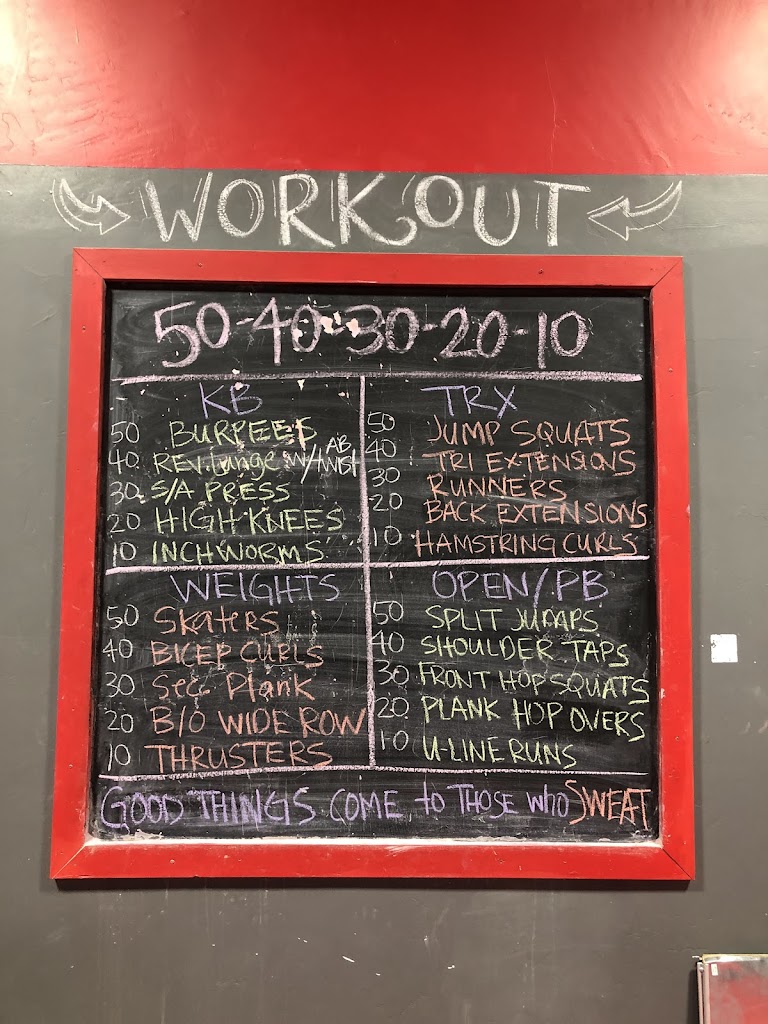 WORKOUT
50-40-30-20-10
KB
50 BURPEES
40 REV. Lunge w/ AB TWIST
30 S/A PRESS
20 HIGH KNEES
10 INCHWORMS
TRX
50 JUMP SQUATS
40 TRI EXTENSIONS
30 RUNNERS
20 BACK EXTENSIONS
10 HAMSTRING CURLS
WEIGHTS
50 SKaterS
40 BICEP CURLS
30 Sec. Plank
20 B/O WIDE ROW
10 THRUSTERS
OPEN/PB
50 SPLIT JUMPS
40 SHOULDER TAPS
30 FRONT HOP SQUATS
20 PLANK HOP OVERS
10 U-LINE RUNS
GOOD THINGS COME to THOSE WHO SWEAT